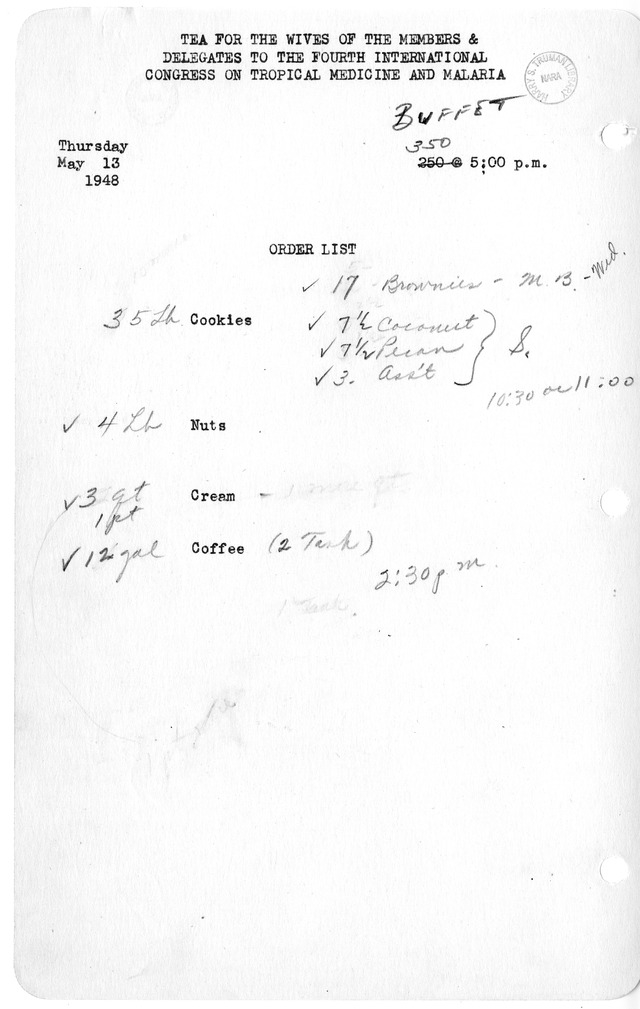 TEA FOR THE WIVES OF THE MEMBERS &
DELEGATES TO THE FOURTH INTERNATIONAL
CONGRESS ON TROPICAL MEDICINE AND MALARIA
HARRY S. TRUMAN LIBRARY
NARA
BUFFET
Thursday
350
May 13
250 @ 5:00 p.m.
1948
ORDER LIST
✓ 17 Brownies - M.B. - Wed.
35 Lb Cookies
✓ 7½ Coconut
✓ 7½ Pecan } S.
✓ 3. Ass't
10:30 or 11:00
✓ 4 Lb Nuts
✓ 3 qt Cream -
1 pt
✓ gal Coffee (2 Tank)
2:30 p m.
1 Tank.